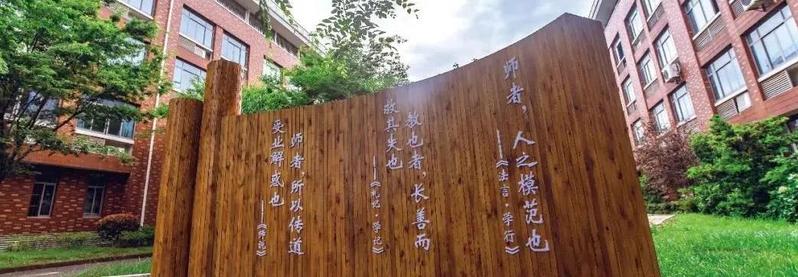 师者，人之模范也
——《法言·学行》
教也者，长善而
救其失也
——《礼记·学记》
师者，所以传道
受业解惑也
——《师说》